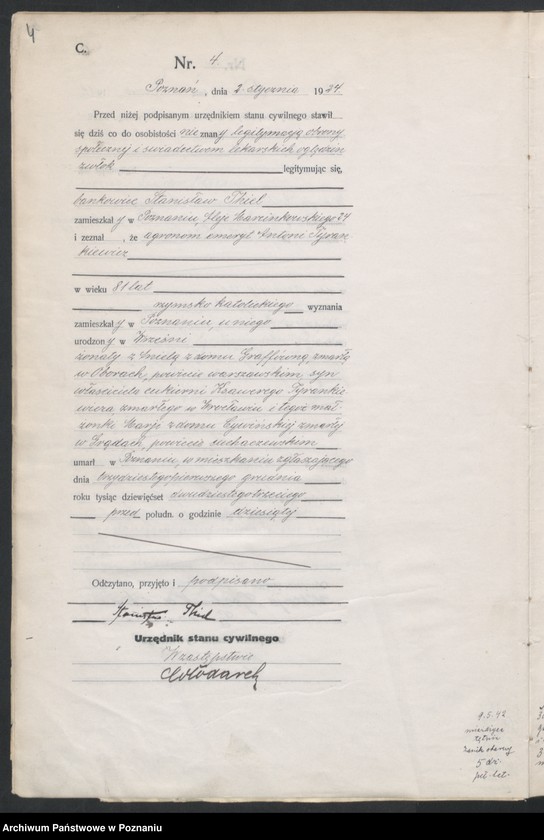 4
C.
Nr. 4
Poznań, dnia 2 stycznia 1924
Przed niżej podpisanym urzędnikiem stanu cywilnego stawił
się dziś co do osobistości nie znany legitymacją obrony
społecznej i świadectwem lekarskich oględzin
zwłok legitymując się,
bankowiec Stanisław Thiel
zamieszkały w Poznaniu, Aleje Marcinkowskiego 24
i zeznał, że agronom emeryt Antoni Tyran
kiewicz
w wieku 81 lat
rzymsko katolickiego wyznania
zamieszkały w Poznaniu, u niego
urodzony w Wrześni
żonaty z Anielą z domu Graffówną, zmarłą
w Oborach, powiecie warszawskim, syn
właściciela cukierni Ksawerego Tyrankie
wicza zmarłego w Wrocławiu i tegoż mał-
żonki Marji z domu Cywińskiej zmarłej
w powiecie sochaczewskim
umarł w Poznaniu, w mieszkaniu zgłaszającego
dnia trzydziestegopierwszego grudnia
roku tysiąc dziewięćset dwudziestegotrzeciego
przed połudn. o godzinie dziesiątej
Odczytano, przyjęto i podpisano
Stanisław Thiel
Urzędnik stanu cywilnego
W zastępstwie
9.5.42
5 dz.
Archiwum Państwowe w Poznaniu